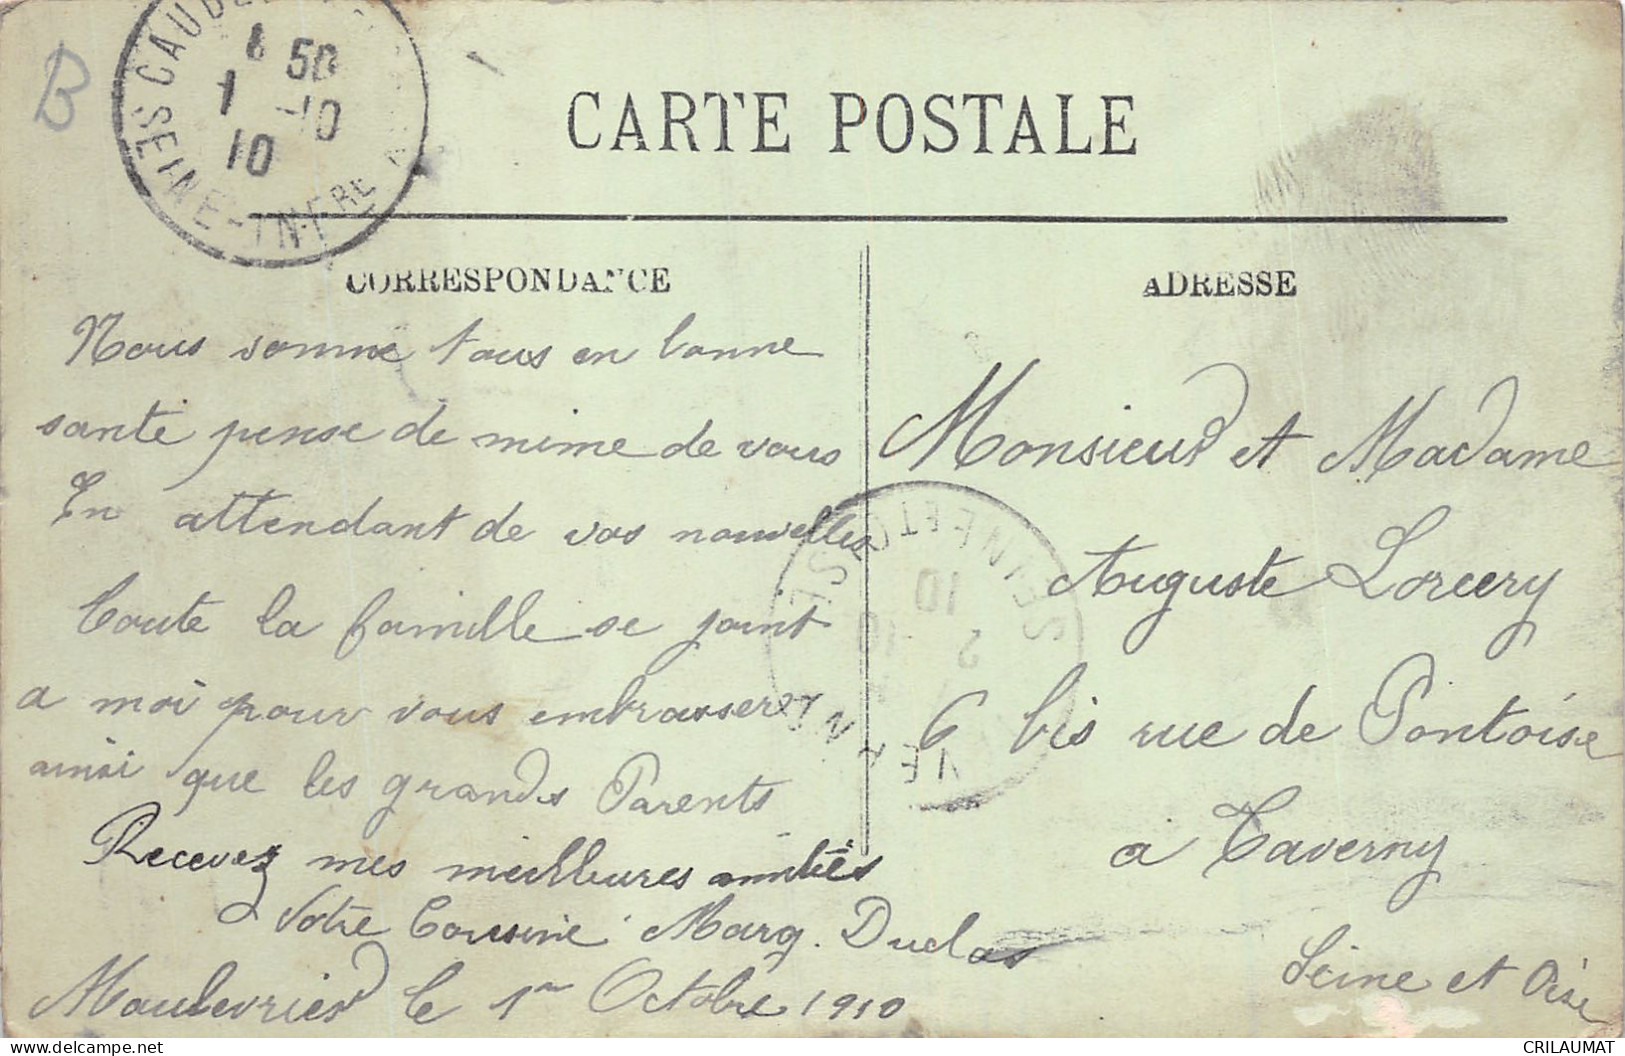 B
SEINE-INFRE
8 50
1 -10
10
CARTE POSTALE
CORRESPONDANCE
ADRESSE
Nous somme tous en bonne
sante pense de mime de vous
En attendant de vos nouvelles
Toute la famille se joint
a moi pour vous embrasser
ainsi que les grands Parents
Recevez mes meilleures amitiés
Votre Cousine Marg. Duclos
Maulevrier le 1er Octobre 1910
Monsieur et Madame
Auguste Lorcery
6 bis rue de Pontoise
à Taverny
Seine et Oise
SEINE ET OISE
10
2 10
CRILAUMAT